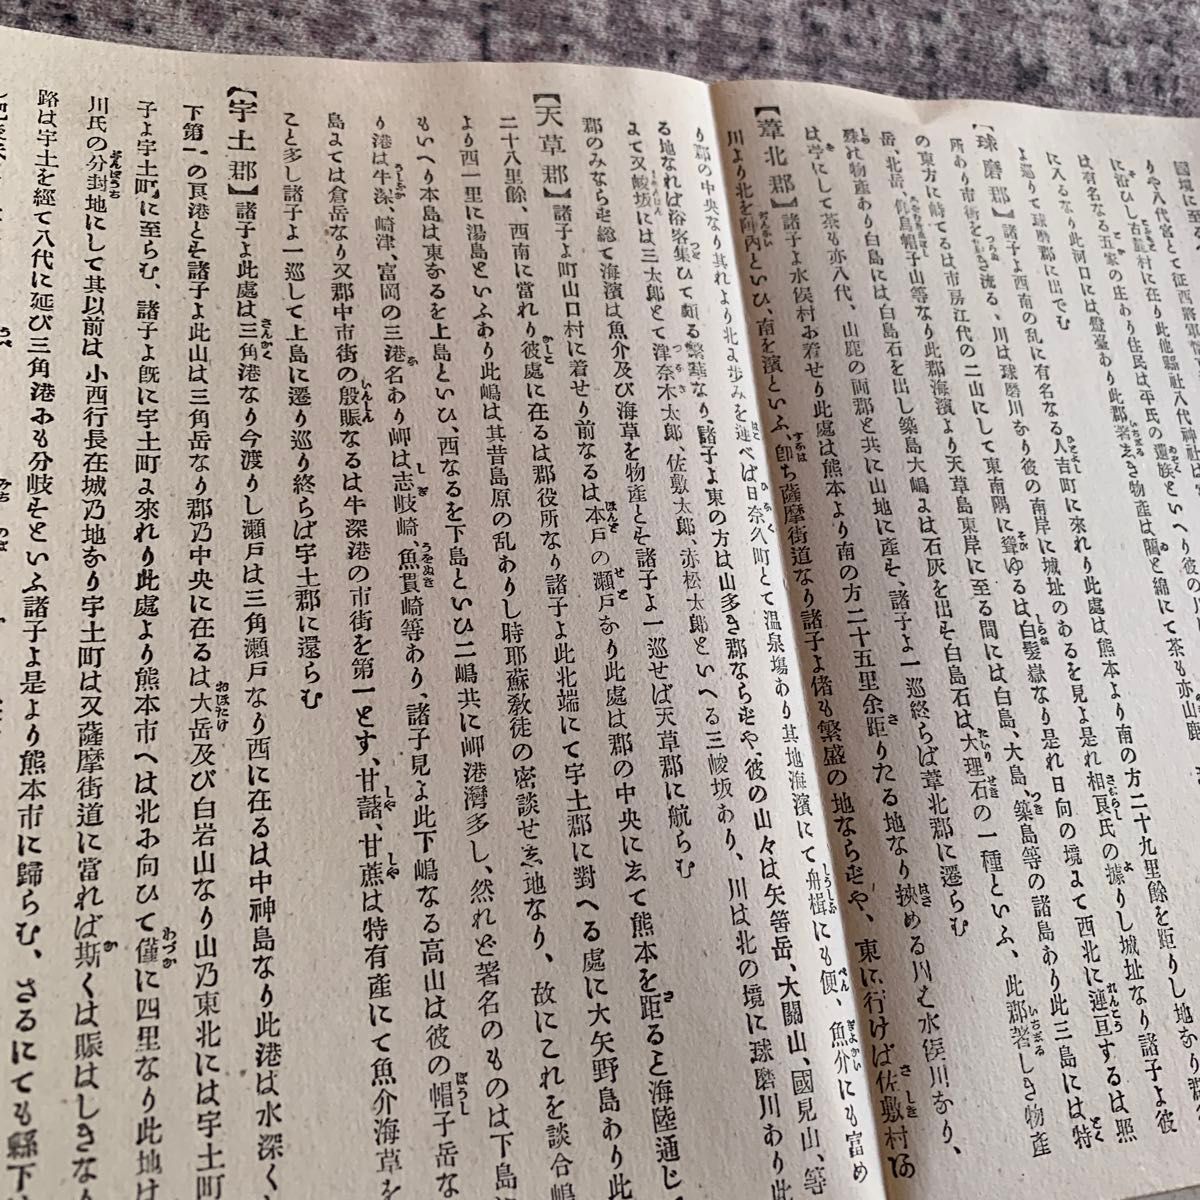 圓環に至る
りや八代宮とて征西將軍
に沿ひし古麓村に在り此他縣社八代神社は
は有名なる五家の庄あり住民は平氏の遺族といへり彼の川
に入るなり此河口には燈臺あり此郡著しき物産は藺と綿にて茶も亦山鹿
よ巡りて球磨郡に出でむ
【球磨郡】諸子よ西南の乱に有名なる人吉町に來れり此處は熊本より南の方二十九里餘を距りし地なり
所あり南街をもき流る、川は球磨川なり彼の南岸に城址のあるを見よ是れ相良氏の據りし城址なり諸子よ彼
の東方に峙てるは市房江代の二山にして東南隅に聳ゆるは白髮嶽なり是れ日向の境よて西北に連亘するは照
岳、北岳、烏帽子山等なり此郡海濱より天草島東岸に至る間には白島、大島、築島等の諸島あり此三島には特
殊の物産あり白島には白島石を出し築島大嶋よは石灰を出せ白島石は大理石の一種といふ、此郡著しき物産
は苧にして茶も亦八代、山鹿の両郡と共に山地に産せ、諸子よ一巡終らば葦北郡に遷らむ
【葦北郡】諸子よ水俣村に着せり此處は熊本より南の方二十五里余距りたる地なり挾める川を水俣川なり、
川より北を陣內といひ、南を濱といふ、卽ち薩摩街道なり諸子よ偖も繁盛の地ならずや、東に行けば佐敷村あ
り郡の中央なり其れより北よ歩みを運べば日奈久町とて温泉塲あり其地海濱にて舟楫にも便、魚介にも富め
る地なれば浴客集ひて頗る繁華なり、諸子よ東の方は山多き郡ならずや、彼の山々は矢筈岳、大關山、國見山、等
よて又峻坂には三太郎とて津奈木太郎、佐敷太郎、赤松太郎といへる三峻坂あり、川は北の境に球磨川あり此
郡のみならず總て海濱は魚介及び海草を物産とせ諸子よ一巡せば天草郡に航らむ
【天草郡】諸子よ町山口村に着せり前なるは本戸の瀬戸なり此處は郡の中央にして熊本を距ると海陸通じて
二十八里餘、西南に當れり彼處に在るは郡役所なり諸子よ此北端にて宇土郡に對へる處に大矢野島あり此
より四一里に湯島といふあり此嶋は其昔島原の乱ありし時耶蘇敎徒の密談せし地なり、故にこれを談合嶋
もいへり本島は東なるを上島といひ、西なるを下島といひ二嶋共に岬港灣多し、然れど著名のものは下島に
り港は牛深、崎津、富岡の三港名あり岬は志岐崎、魚貫崎等あり、諸子見よ此下嶋なる高山は彼の帽子岳な
島よては倉岳なり又郡中市街の殷賑なるは牛深港の市街を第一とす、甘藷、甘蔗は特有産にて魚介海草を
こと多し諸子よ一巡して上島に遷り巡り終らば宇土郡に還らむ
【宇土郡】諸子よ此處は三角港なり今渡りし瀬戸は三角瀬戸なり西に在るは中神島なり此港は水深く
下第一の良港とせ諸子よ此山は三角岳なり郡乃中央に在るは大岳及び白岩山なり山乃東北には宇土町
子よ宇土町に至らむ、諸子よ旣に宇土町よ來れり此處より熊本市へは北に向ひて僅に四里なり此地は
川氏の分封地にして其以前は小西行長在城乃地なり宇土町は又薩摩街道に當れば斯くは賑はしきなり
路は宇土を經て八代に延び三角港にも分岐せといふ諸子よ是より熊本市に歸らむ、さるにても縣下